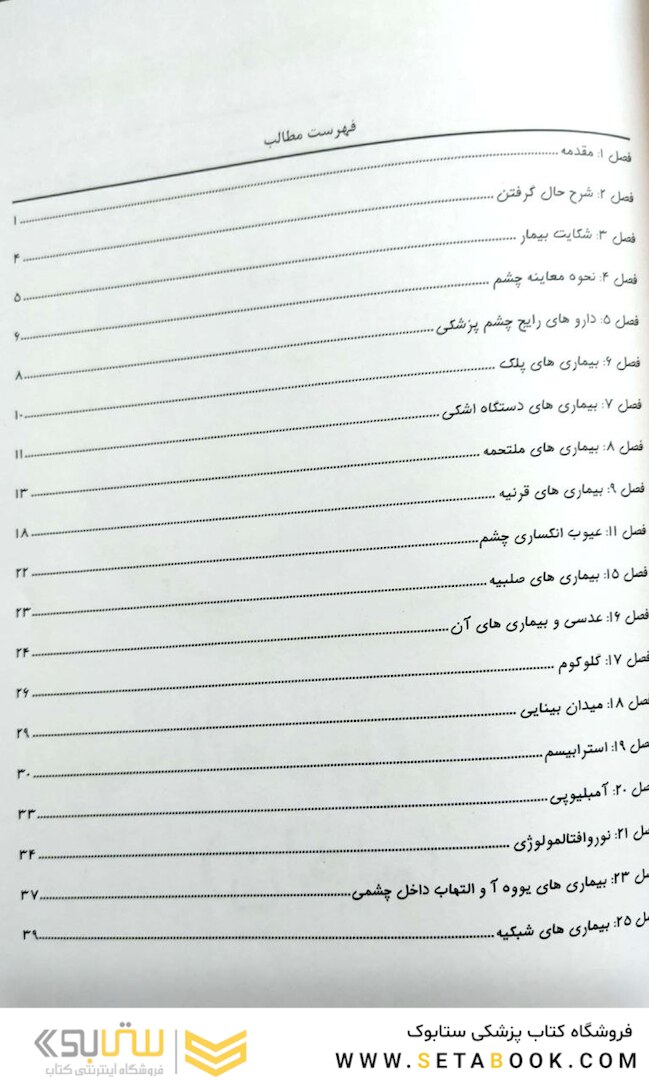 فهرست مطالب
فصل ۱: مقدمه ۱
فصل ۲: شرح حال گرفتن ۴
فصل ۳: شکایت بیمار ۵
فصل ۴: نحوه معاینه چشم ۶
فصل ۵: دارو های رایج چشم پزشکی ۸
فصل ۶: بیماری های پلک ۱۰
فصل ۷: بیماری های دستگاه اشکی ۱۱
فصل ۸: بیماری های ملتحمه ۱۳
فصل ۹: بیماری های قرنیه ۱۸
فصل ۱۱: عیوب انکساری چشم ۲۲
فصل ۱۵: بیماری های صلبیه ۲۳
فصل ۱۶: عدسی و بیماری های آن ۲۴
فصل ۱۷: گلوکوم ۲۶
صل ۱۸: میدان بینایی ۲۹
صل ۱۹: استرابیسم ۳۰
صل ۲۰: آمبلیوپی ۳۳
صل ۲۱: نوروافتالمولوژی ۳۴
صل ۲۳: بیماری های یووه آ و التهاب داخل چشمی ۳۷
صل ۲۵: بیماری های شبکیه ۳۹
فروشگاه کتاب پزشکی ستابوک
WWW.SETABOOK.COM
ستابوک
فروشگاه اینترنتی کتاب